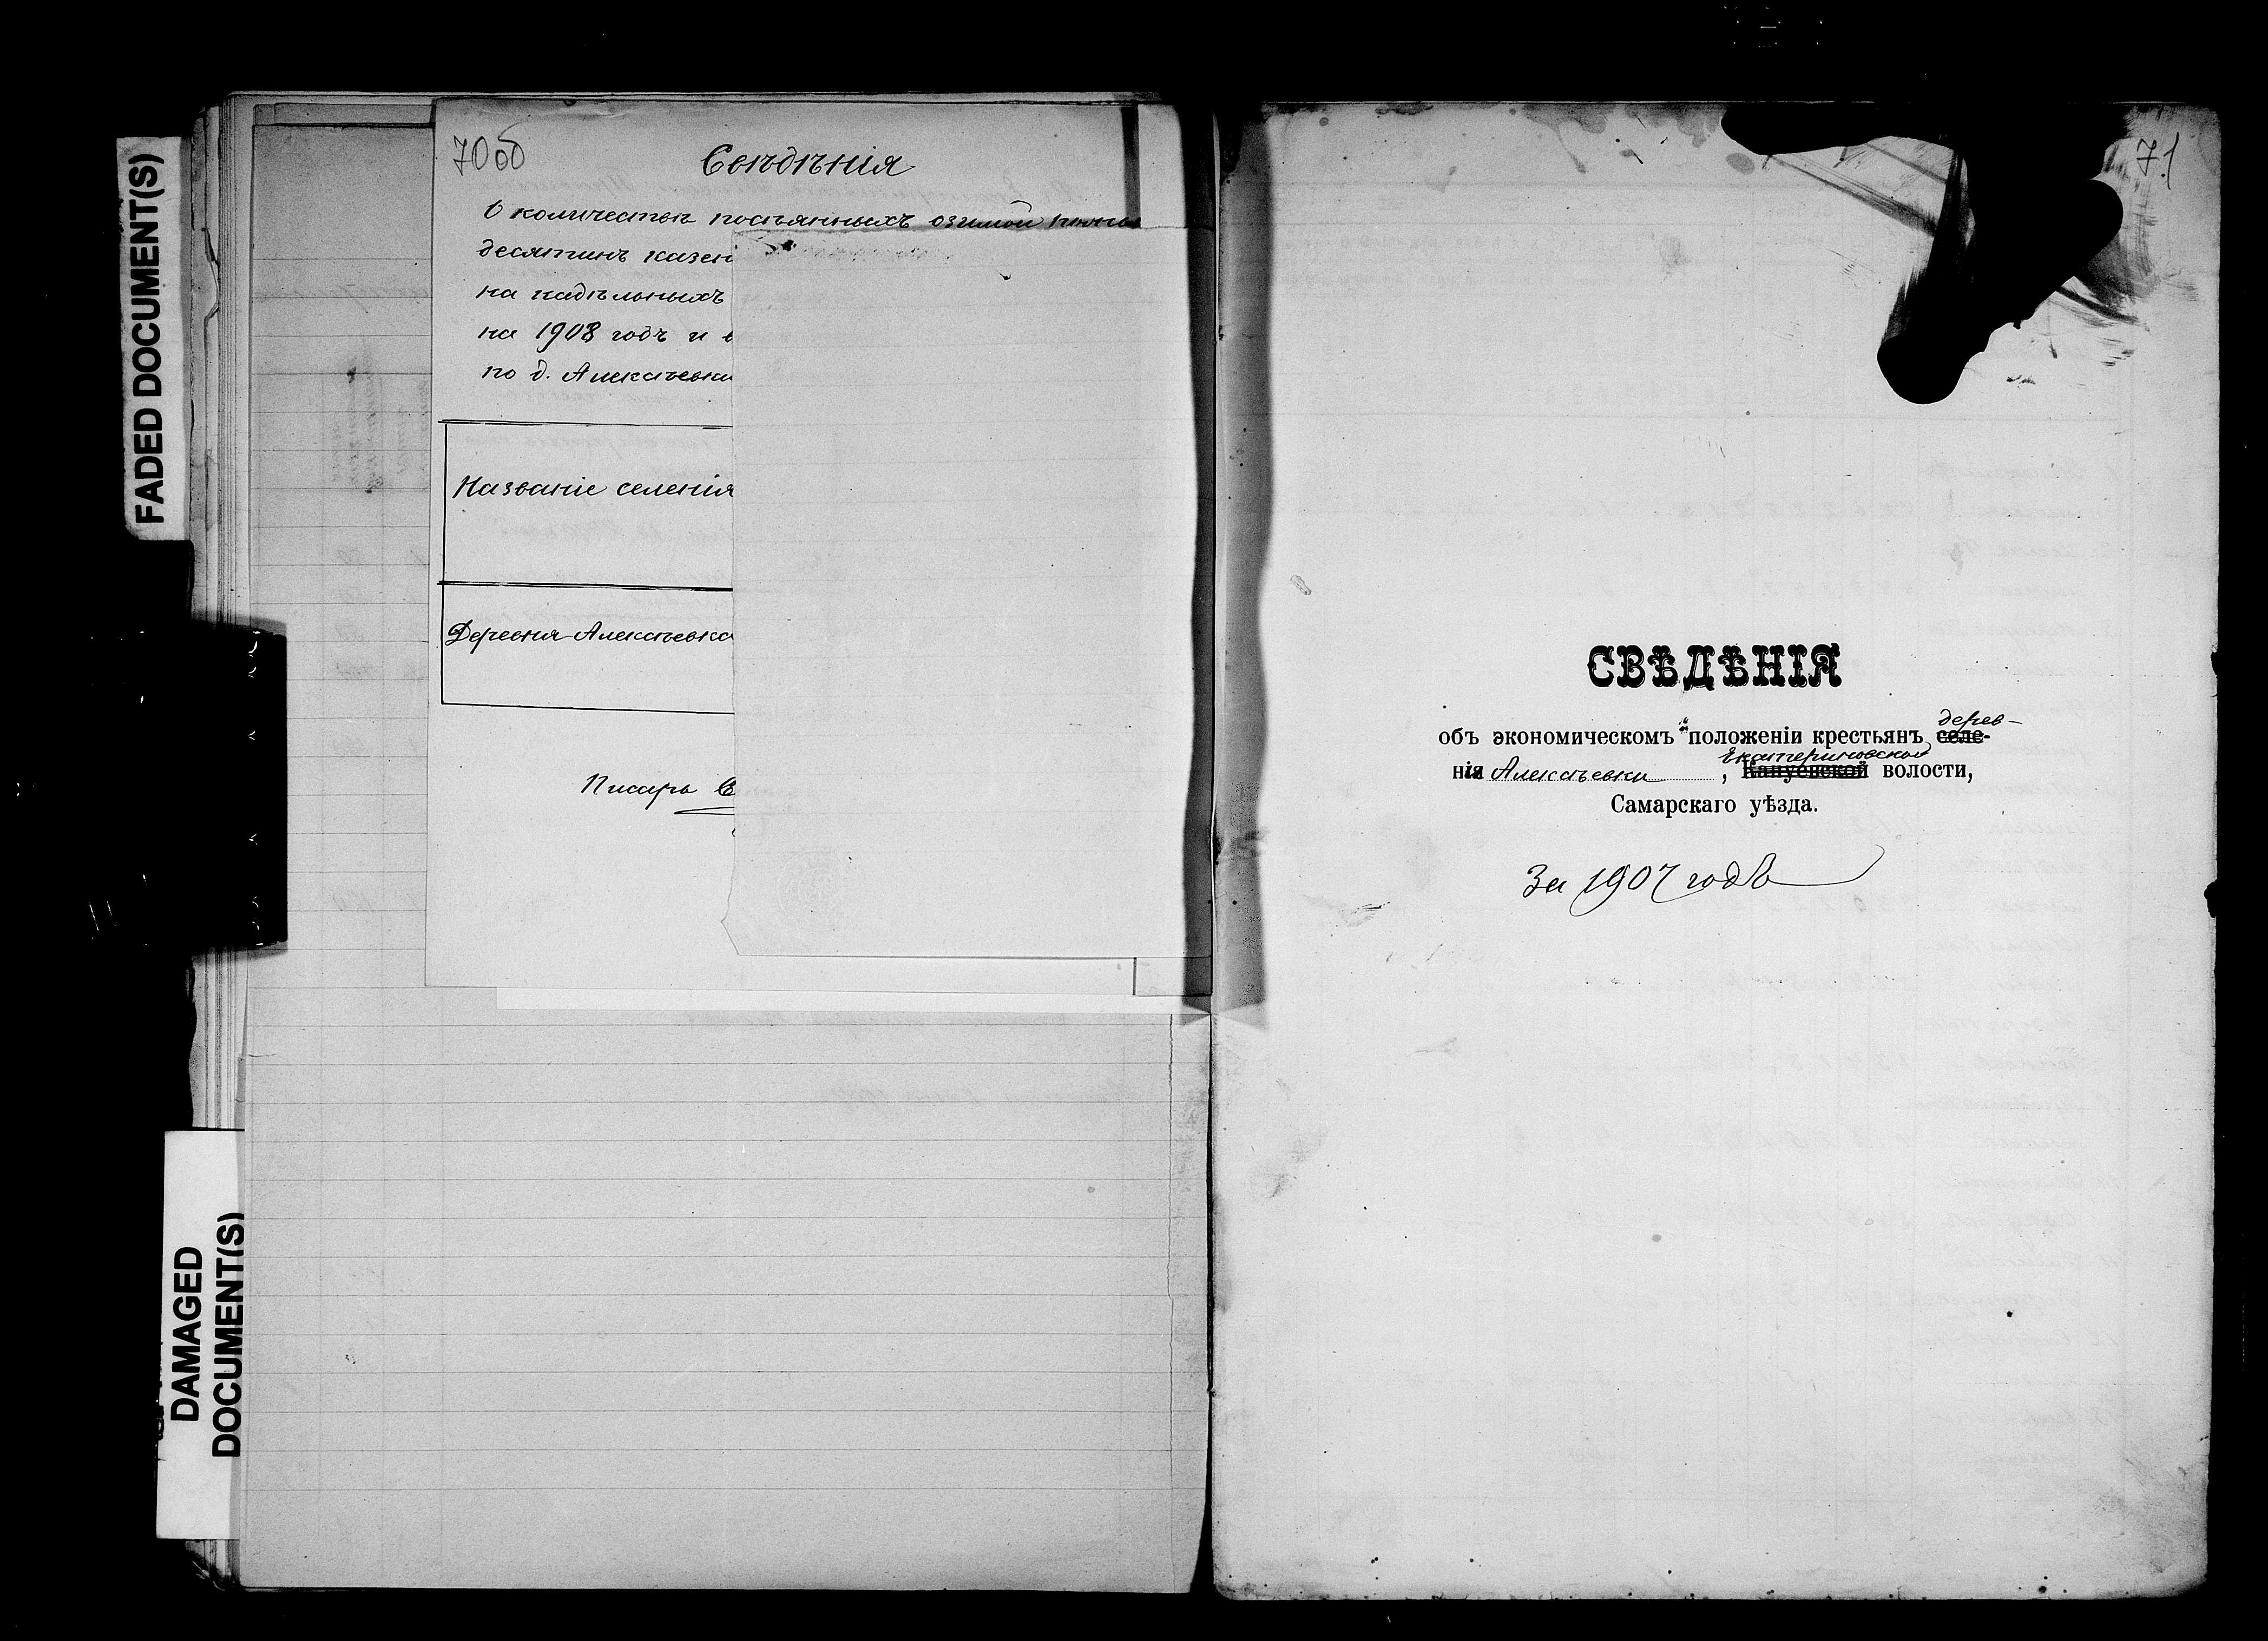 FADED DOCUMENT(S)
DAMAGED
DOCUMENT(S)
70об
Свѣдѣнія
О количествѣ посѣянныхъ озимой
десятинъ казен
на надѣльныхъ
на 1908 годъ и в
по д. Алексѣевки
Названіе селенія
Деревня Алексѣевка
Писарь С
71
СВѢДѢНІЯ
дерев-
объ экономическомъ положеніи крестьянъ селе-
Екатериновской
нія Алексѣевки, Кануевской волости,
Самарскаго уѣзда.
За 1907 годъ